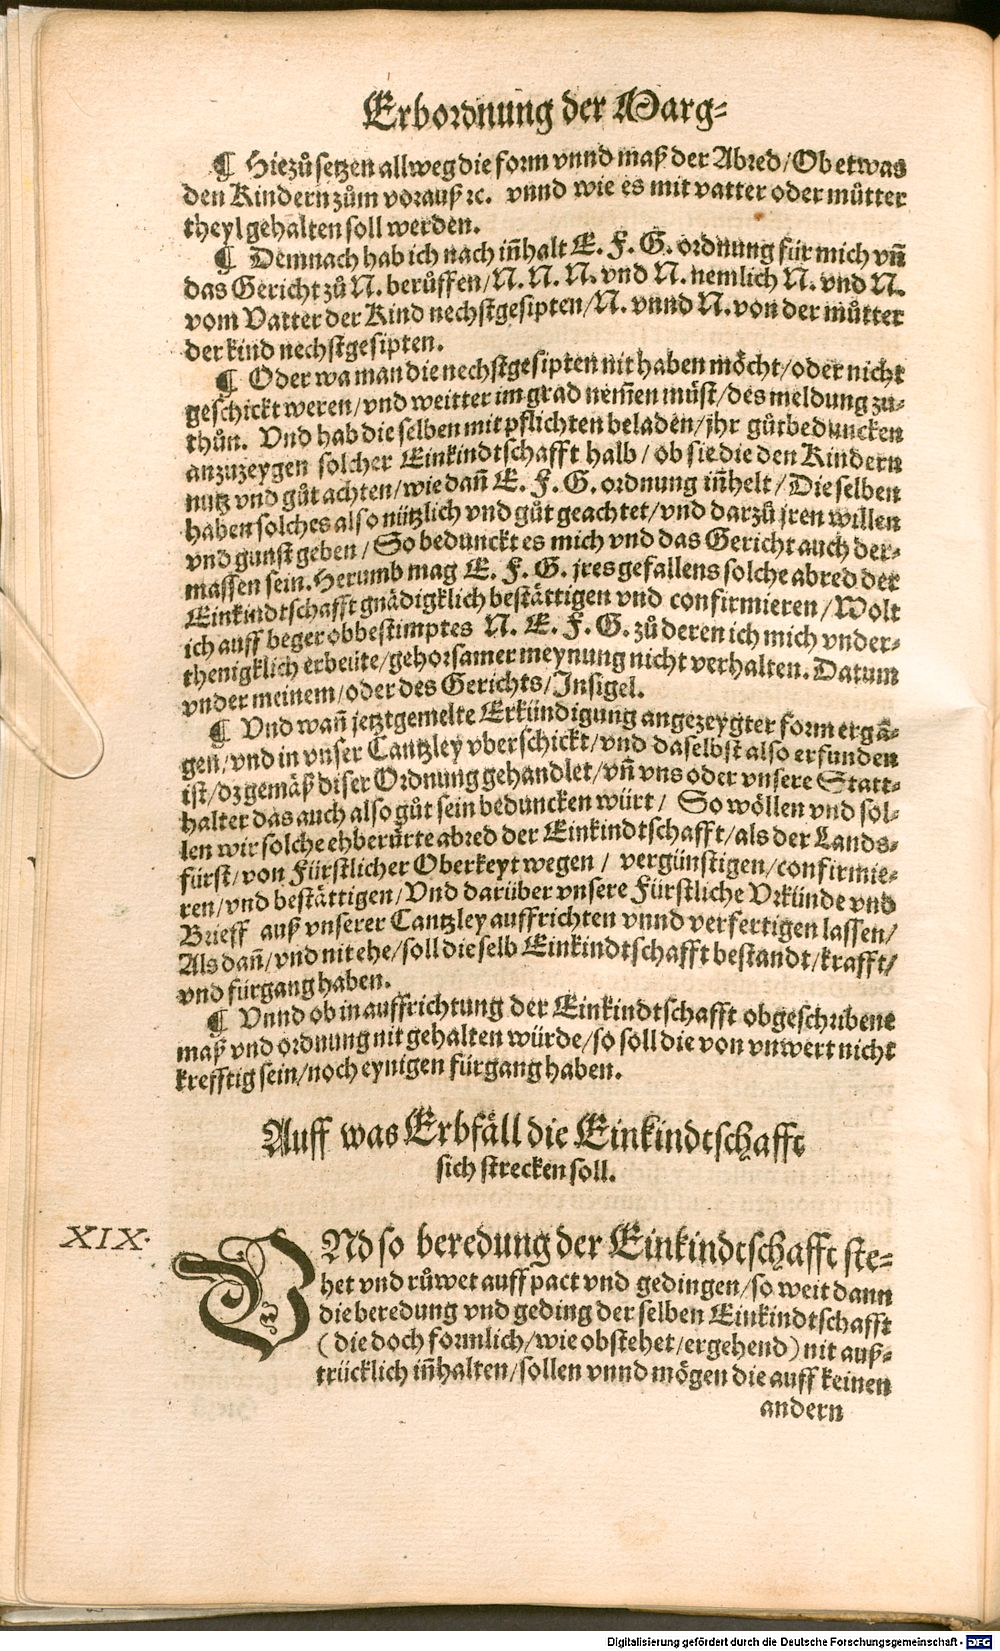 Erbordnung der Marg-
¶ Hiezů setzen allweg die form vnnd maß der Abred/Ob etwas
den Kindern zům vorauß ꝛc. vnnd wie es mit vatter oder můtter
theyl gehalten soll werden.
¶ Demnach hab ich nach iñhalt E. F. G. ordnung für mich vñ
das Gericht zů N. berůffen/N. N. N. vnd N. nemlich N. vnd N.
vom Vatter der Kind nechstgesipten/N. vnnd N. von der můtter
der kind nechstgesipten.
¶ Oder wa man die nechstgesipten nit haben möcht/oder nicht
geschickt weren/vnd weitter im grad nem̃en müst/des meldung zu-
thůn. Vnd hab die selben mit pflichten beladen/jhr gůtbeduncken
anzuzeygen solcher Einkindtschafft halb/ob sie die den Kindern
nutz vnd gůt achten/wie dañ E. F. G. ordnung iñhelt/Die selben
haben solches also nützlich vnd gůt geachtet/vnd darzů jren willen
vnd gunst geben/So bedunckt es mich vnd das Gericht auch der-
massen sein. Herumb mag E. F. G. jres gefallens solche abred der
Einkindtschafft gnädigklich bestättigen vnd confirmieren/Wolt
ich auff beger obbestimptes N. E. F. G. zů deren ich mich vnder-
thenigklich erbeüte/gehorsamer meynung nicht verhalten. Datum
vnder meinem/oder des Gerichts/Insigel.
¶ Vnd wañ jetztgemelte Erkündigung angezeygter form ergã-
gen/vnd in vnser Cantzley vberschickt/vnd daselbst also erfunden
ist/dz gemäß diser Ordnung gehandlet/vñ vns oder vnsere Statt-
halter das auch also gůt sein beduncken würt/ So wöllen vnd sol-
len wir solche ehberůrte abred der Einkindtschafft/als der Lands-
fürst/von Fürstlicher Oberkeyt wegen/ vergünstigen/confirmie-
ren/vnd bestättigen/Vnd darüber vnsere Fürstliche Vrkünde vnd
Brieff auß vnserer Cantzley auffrichten vnnd verfertigen lassen/
Als dañ/vnd nit ehe/soll die selb Einkindtschafft bestandt/krafft/
vnd fürgang haben.
¶ Vnnd ob in auffrichtung der Einkindtschafft obgeschribene
maß vnd ordnung nit gehalten würde/so soll die von vnwert nicht
krefftig sein/noch eynigen fürgang haben.
Auff was Erbfäll die Einkindtschafft
sich strecken soll.
XIX.
VNd so beredung der Einkindtschafft ste-
het vnd růwet auff pact vnd gedingen/so weit dann
die beredung vnd geding der selben Einkindtschafft
(die doch formlich/wie obstehet/ergehend) nit auß-
trücklich iñhalten/sollen vnnd mögen die auff keinen
andern
Digitalisierung gefördert durch die Deutsche Forschungsgemeinschaft - DFG